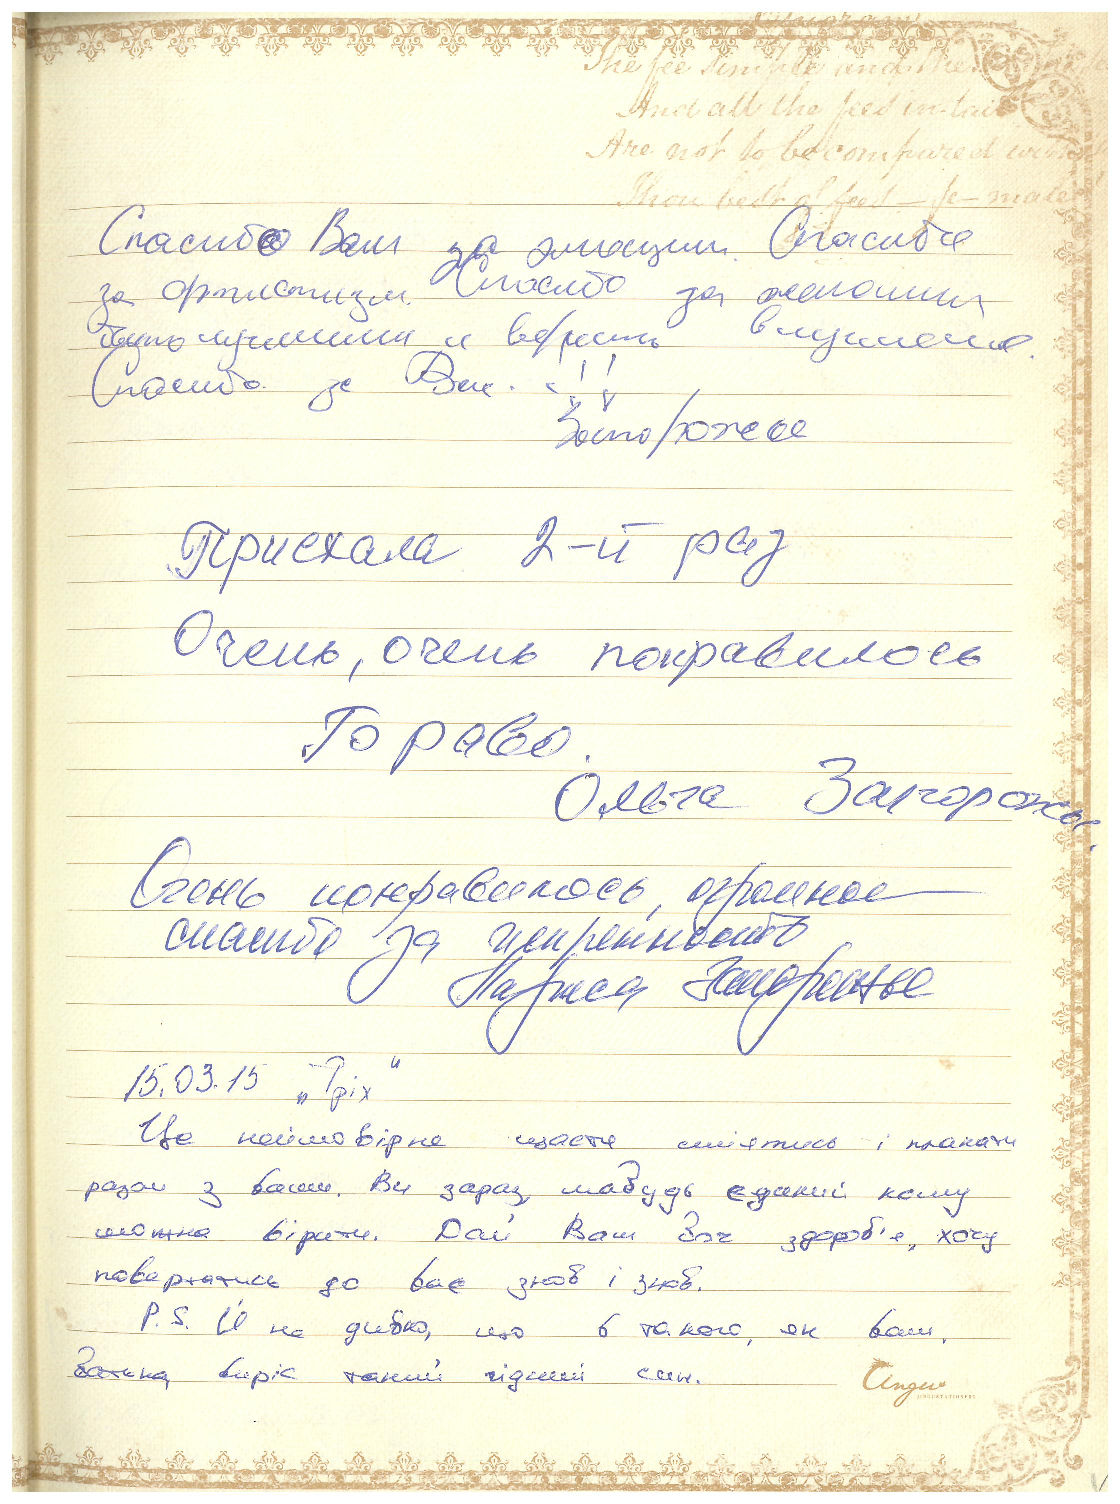 The fee simple and the
And all the fees in-tail
Are not to be compared with
Thou best of fees – fe-male!
Спасибо Вам за эмоции. Спасибо
за артистизм. Спасибо за желание
быть лучшими и верить в лучшее.
Спасибо за Вас. !!!
Запорожье
Приехала 2-й раз
Очень, очень понравилось
Браво.
Ольга Запорожье.
Очень понравилось, огромное
спасибо за искренность
Лариса Запорожье
15.03.15 „Гріх“
Це неймовірне щастя сміятись і плакати
разом з вами. Ви зараз, мабудь єдиний кому
можна вірити. Дай Вам Бог здоров'я, хочу
повертатись до вас знов і знов.
P.S. Й не дивно, що в такого, як ваш,
батька, виріс такий гідний син.